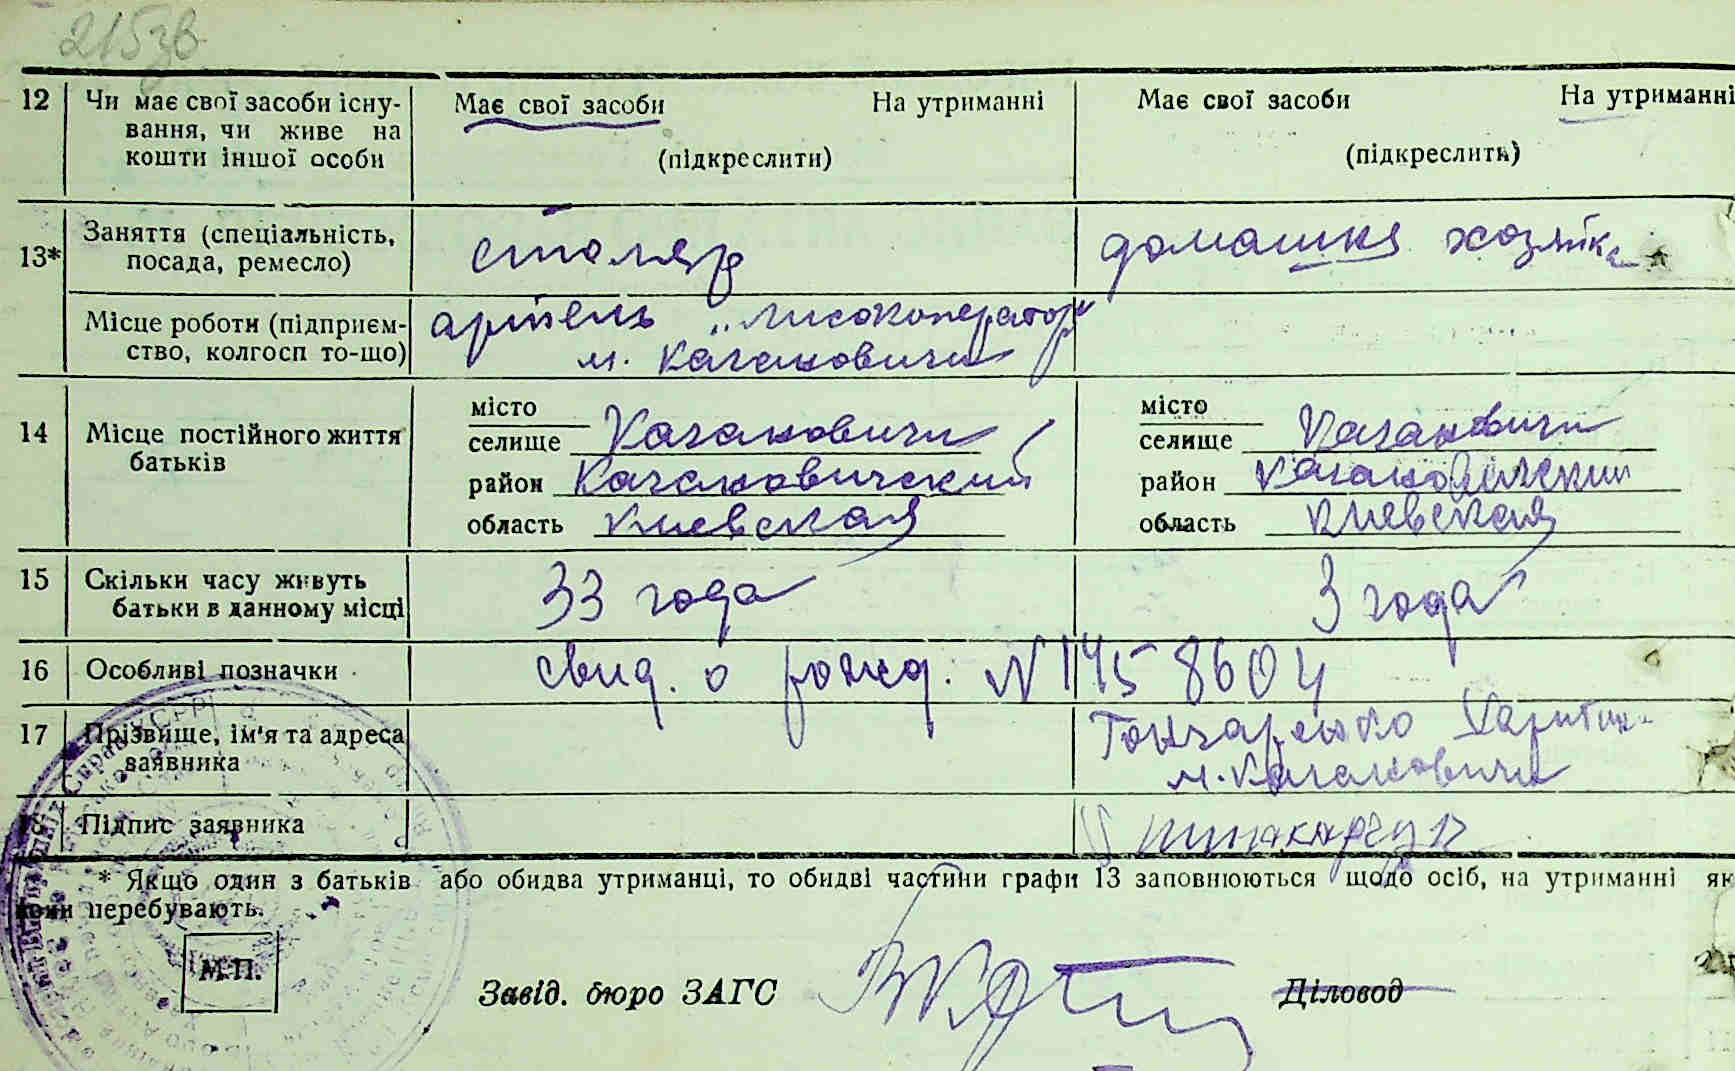 215зв
12 Чи має свої засоби існу- Має свої засоби На утриманні Має свої засоби На утриманні
вання, чи живе на
кошти іншої особи (підкреслити) (підкреслити)
13* Заняття (спеціальність, столяр домашня хозяйка
посада, ремесло)
Місце роботи (підприєм- артель
ство, колгосп то-що) м. Кагановичи
місто місто
14 Місце постійного життя селище Кагановичи селище Кагановичи
батьків
район Кагановичский район
область Киевская область Киевская
15 Скільки часу живуть 33 года 3 года
батьки в данному місці
16 Особливі позначки свид. о рожд. N 1458604
17 Прізвище, ім'я та адреса Гончаренко
заявника м. Кагановичи
Підпис заявника
* Якщо один з батьків або обидва утриманці, то обидві частини графи 13 заповнюються щодо осіб, на утриманні як
вони перебувають.
М.П.
Завід. бюро ЗАГС Діловод